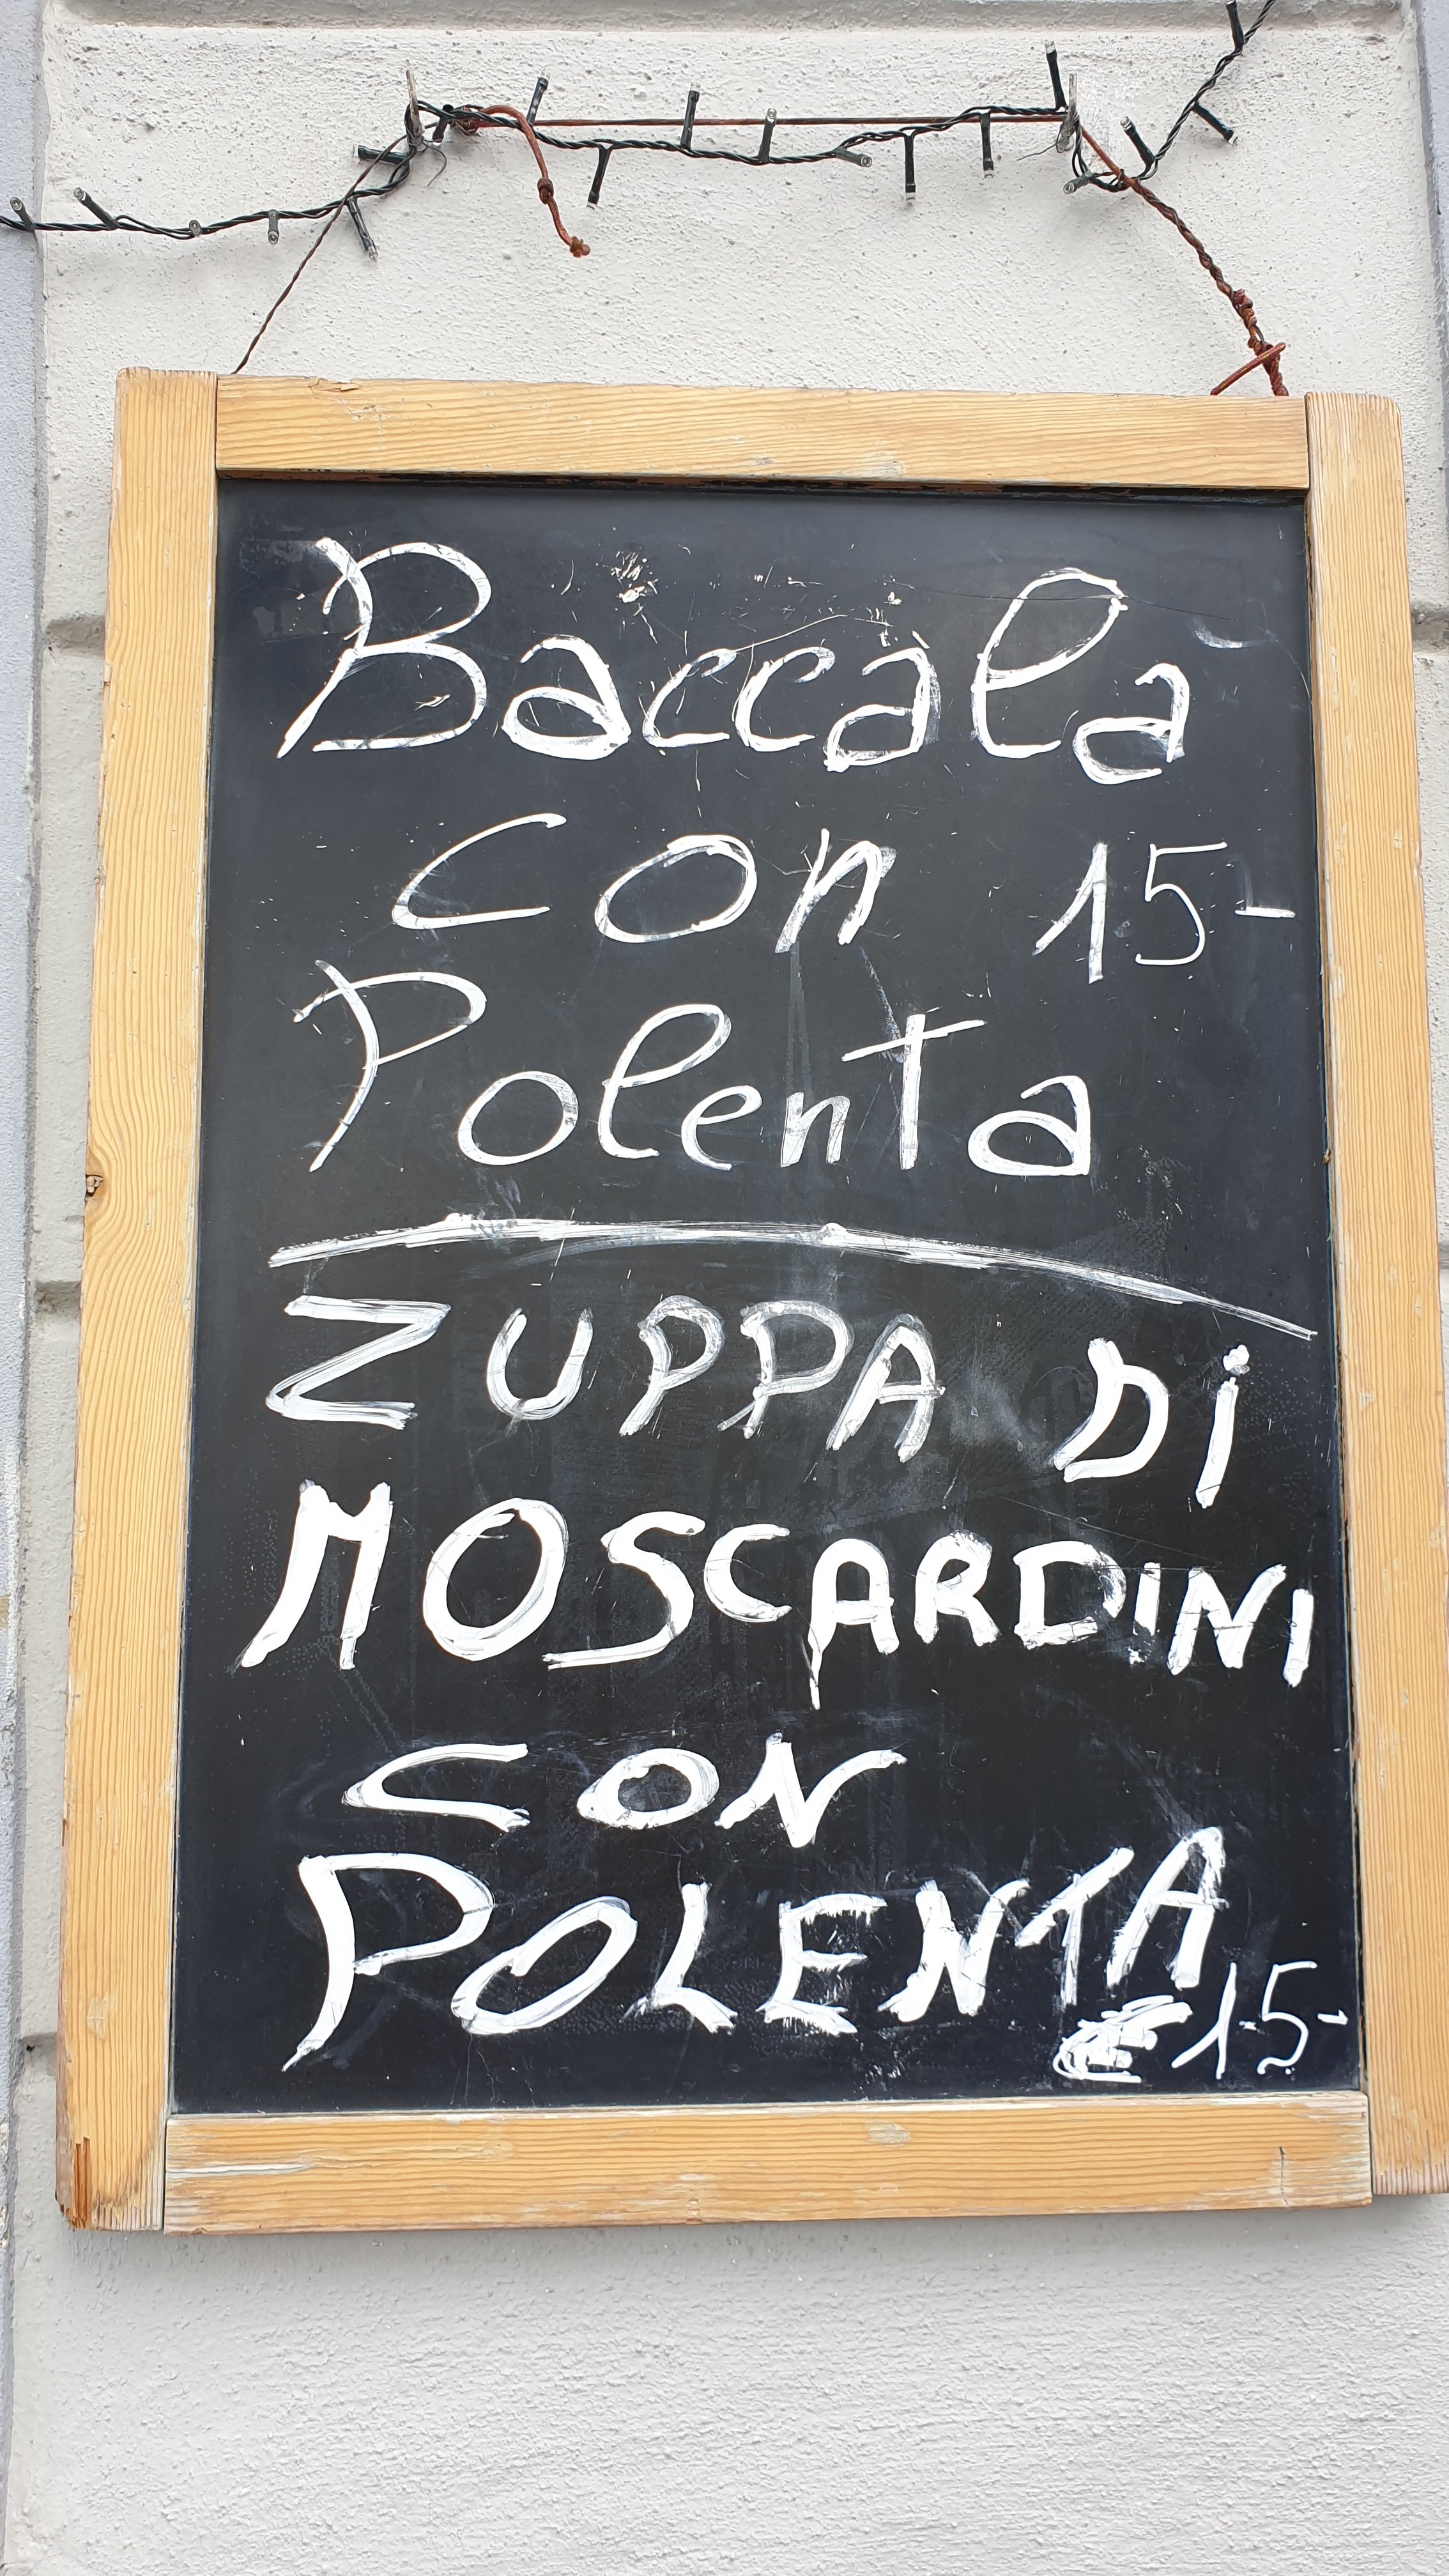 Baccala
con 15-
Polenta
ZUPPA Di
MOSCARDINI
CON
POLENTA
€ 15-